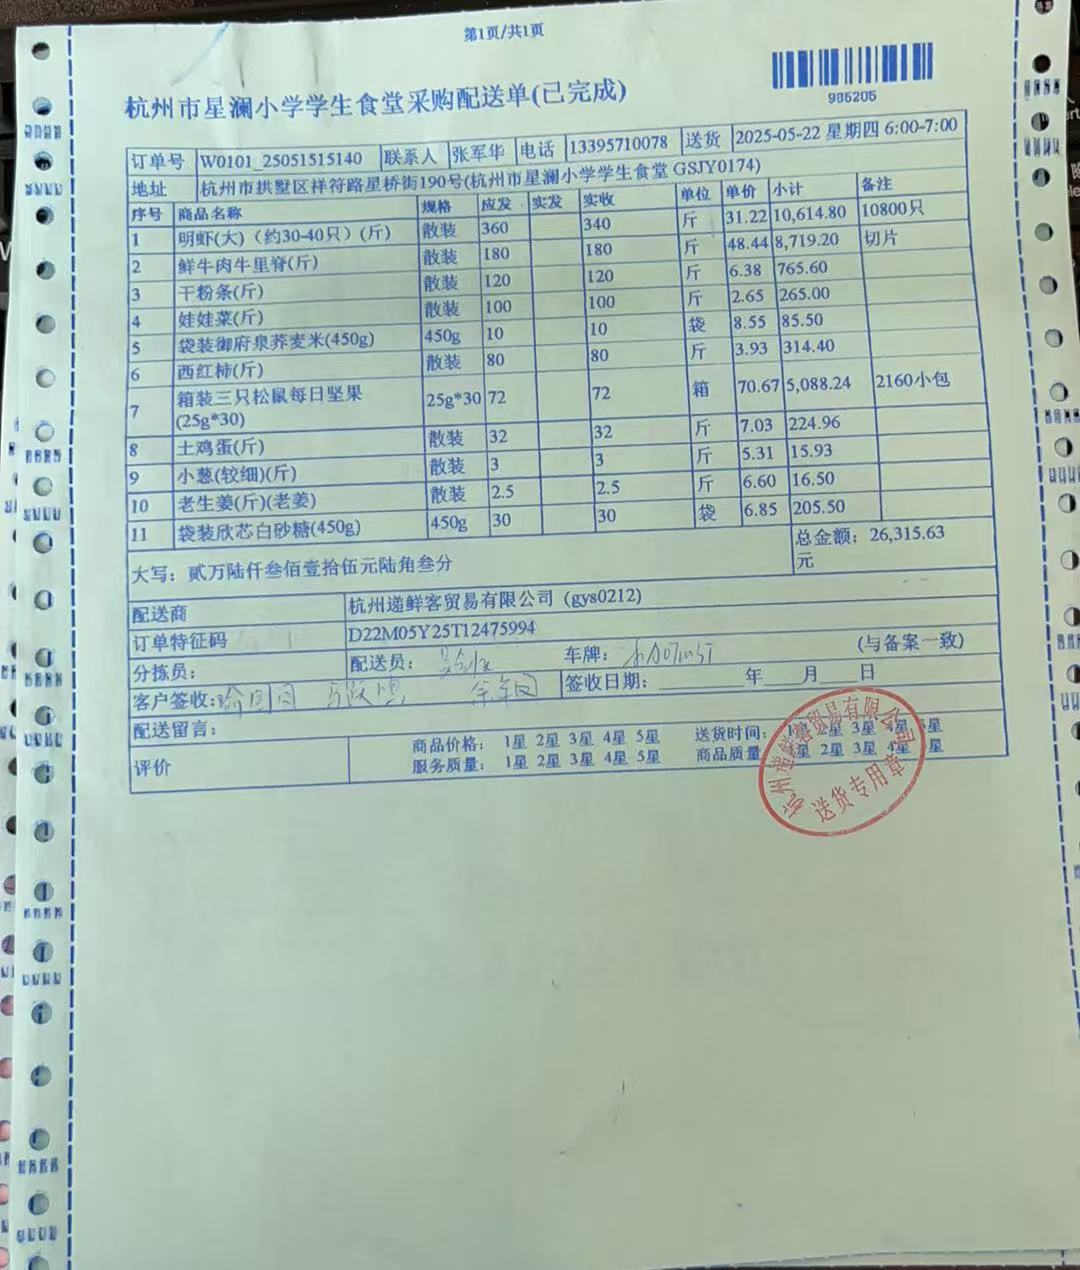 第1页/共1页
杭州市星澜小学学生食堂采购配送单(已完成)
986205
订单号 W0101_25051515140 联系人 张军华 电话 13395710078 送货 2025-05-22 星期四 6:00-7:00
地址 杭州市拱墅区祥符路星桥街190号(杭州市星澜小学学生食堂 GSJY0174)
序号 商品名称 规格 应发 实发 实收 单位 单价 小计 备注
1 明虾(大)（约30-40只）(斤) 散装 360 340 斤 31.22 10,614.80 10800只
2 鲜牛肉牛里脊(斤) 散装 180 180 斤 48.44 8,719.20 切片
3 干粉条(斤) 散装 120 120 斤 6.38 765.60
4 娃娃菜(斤) 散装 100 100 斤 2.65 265.00
5 袋装御府泉荞麦米(450g) 450g 10 10 袋 8.55 85.50
6 西红柿(斤) 散装 80 80 斤 3.93 314.40
7 箱装三只松鼠每日坚果 25g*30 72 72 箱 70.67 5,088.24 2160小包
(25g*30)
8 土鸡蛋(斤) 散装 32 32 斤 7.03 224.96
9 小葱(较细)(斤) 散装 3 3 斤 5.31 15.93
10 老生姜(斤)(老姜) 散装 2.5 2.5 斤 6.60 16.50
11 袋装欣芯白砂糖(450g) 450g 30 30 袋 6.85 205.50
大写：贰万陆仟叁佰壹拾伍元陆角叁分 总金额：26,315.63
元
配送商 杭州递鲜客贸易有限公司（gys0212)
订单特征码 D22M05Y25T12475994
分拣员： 配送员： 车牌： (与备案一致)
客户签收: 签收日期： 年 月 日
配送留言：
评价 商品价格： 1星 2星 3星 4星 5星 送货时间： 1星 2星 3星 4星 5星
服务质量： 1星 2星 3星 4星 5星 商品质量： 1星 2星 3星 4星 5星
杭州递鲜客贸易有限公司
送货专用章